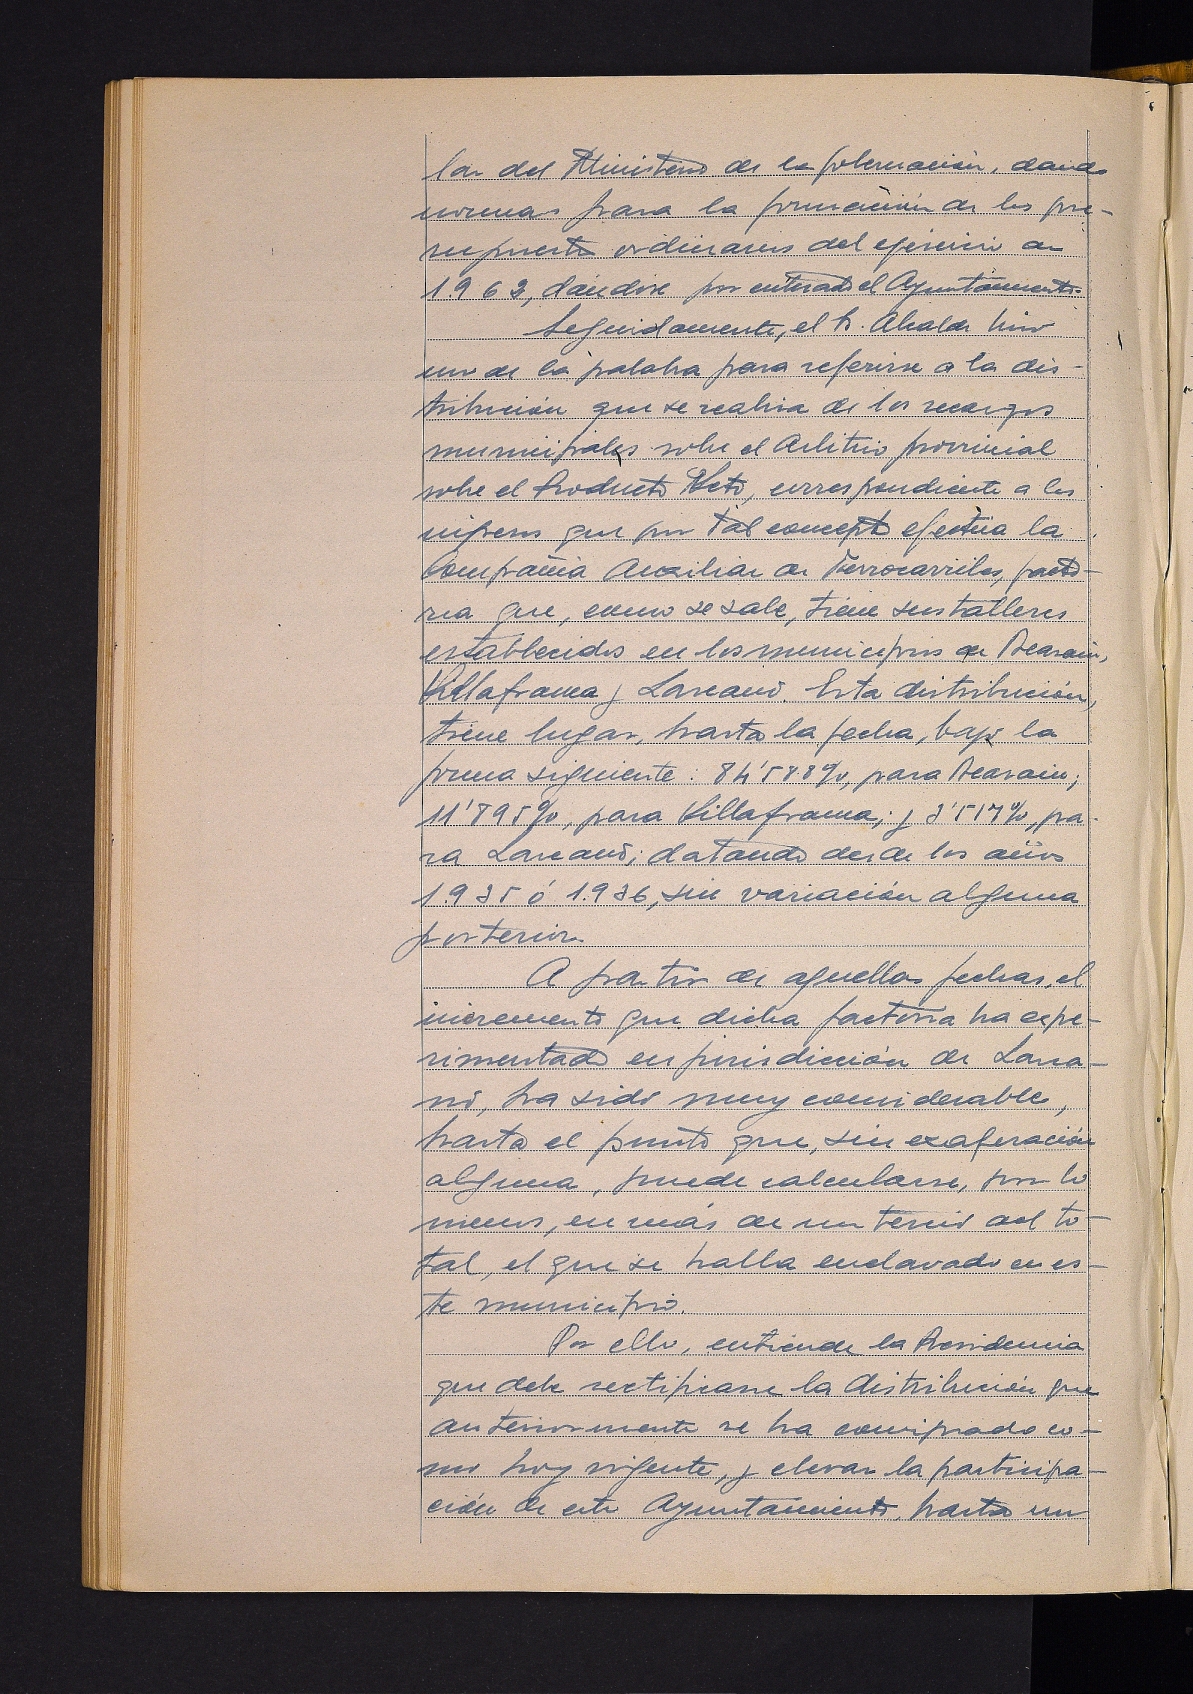 lar del Ministerio de la Gobernación, dando
normas para la formación de los pre-
supuestos ordinarios del ejercicio de
1.963, dándose por enterado el Ayuntamiento.
Seguidamente, el Sr. Alcalde hizo
uso de la palabra para referirse a la dis-
tribución que se realiza de los recargos
municipales sobre el Arbitrio provincial
sobre el Producto Neto, correspondiente a los
ingresos que por tal concepto efectúa la
Compañía Auxiliar de Ferrocarriles, facto-
ria que, como se sabe, tiene sus talleres
establecidos en los municipios de Beasain,
Villafranca y Lazcano. Esta distribución,
tiene lugar, hasta la fecha, bajo la
forma siguiente: 84'588%, para Beasain;
11'895%, para Villafranca; y 3'517%, pa-
ra Lazcano; datando desde los años
1.935 ó 1.936, sin variación alguna
posterior.
A partir de aquellas fechas, el
incremento que dicha factoria ha expe-
rimentado en jurisdicción de Lazca-
no, ha sido muy considerable,
hasta el punto que, sin exageración
alguna, puede calcularse, por lo
menos, en más de un tercio del to-
tal, el que se halla enclavado en es-
te municipio.
Por ello, entiende la Presidencia
que debe rectificarse la distribución que
anteriormente se ha consignado co-
mo hoy vigente, y elevar la participa-
ción de este Ayuntamiento, hasta un